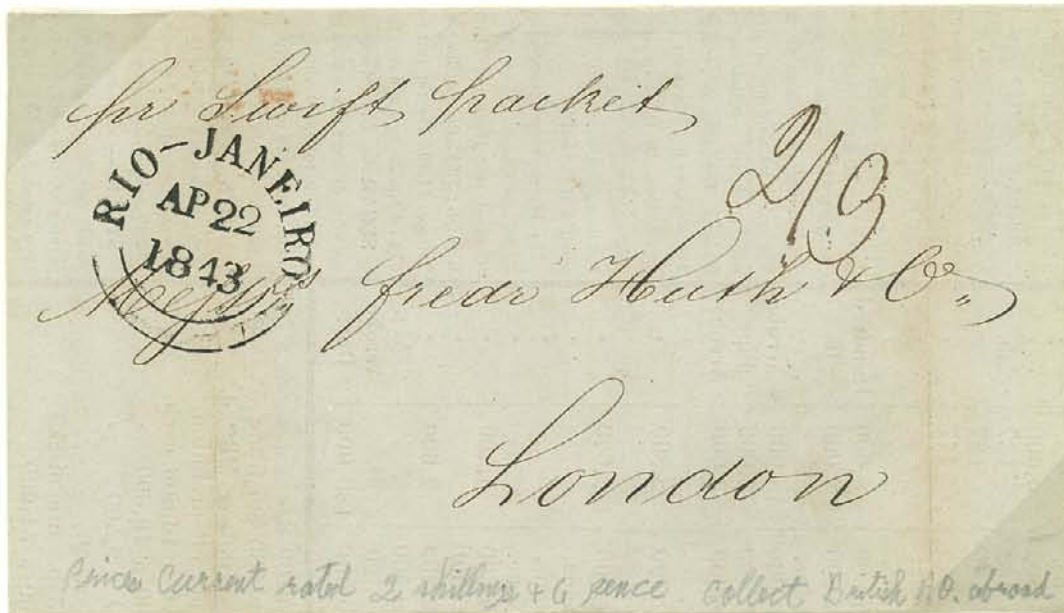 pr Swift packet
RIO-JANEIRO
AP 22
1843
2/9
Messrs fredr Huth & Co.
London
Prices Current rated 2 shillings + 6 pence collect British P.O. abroad